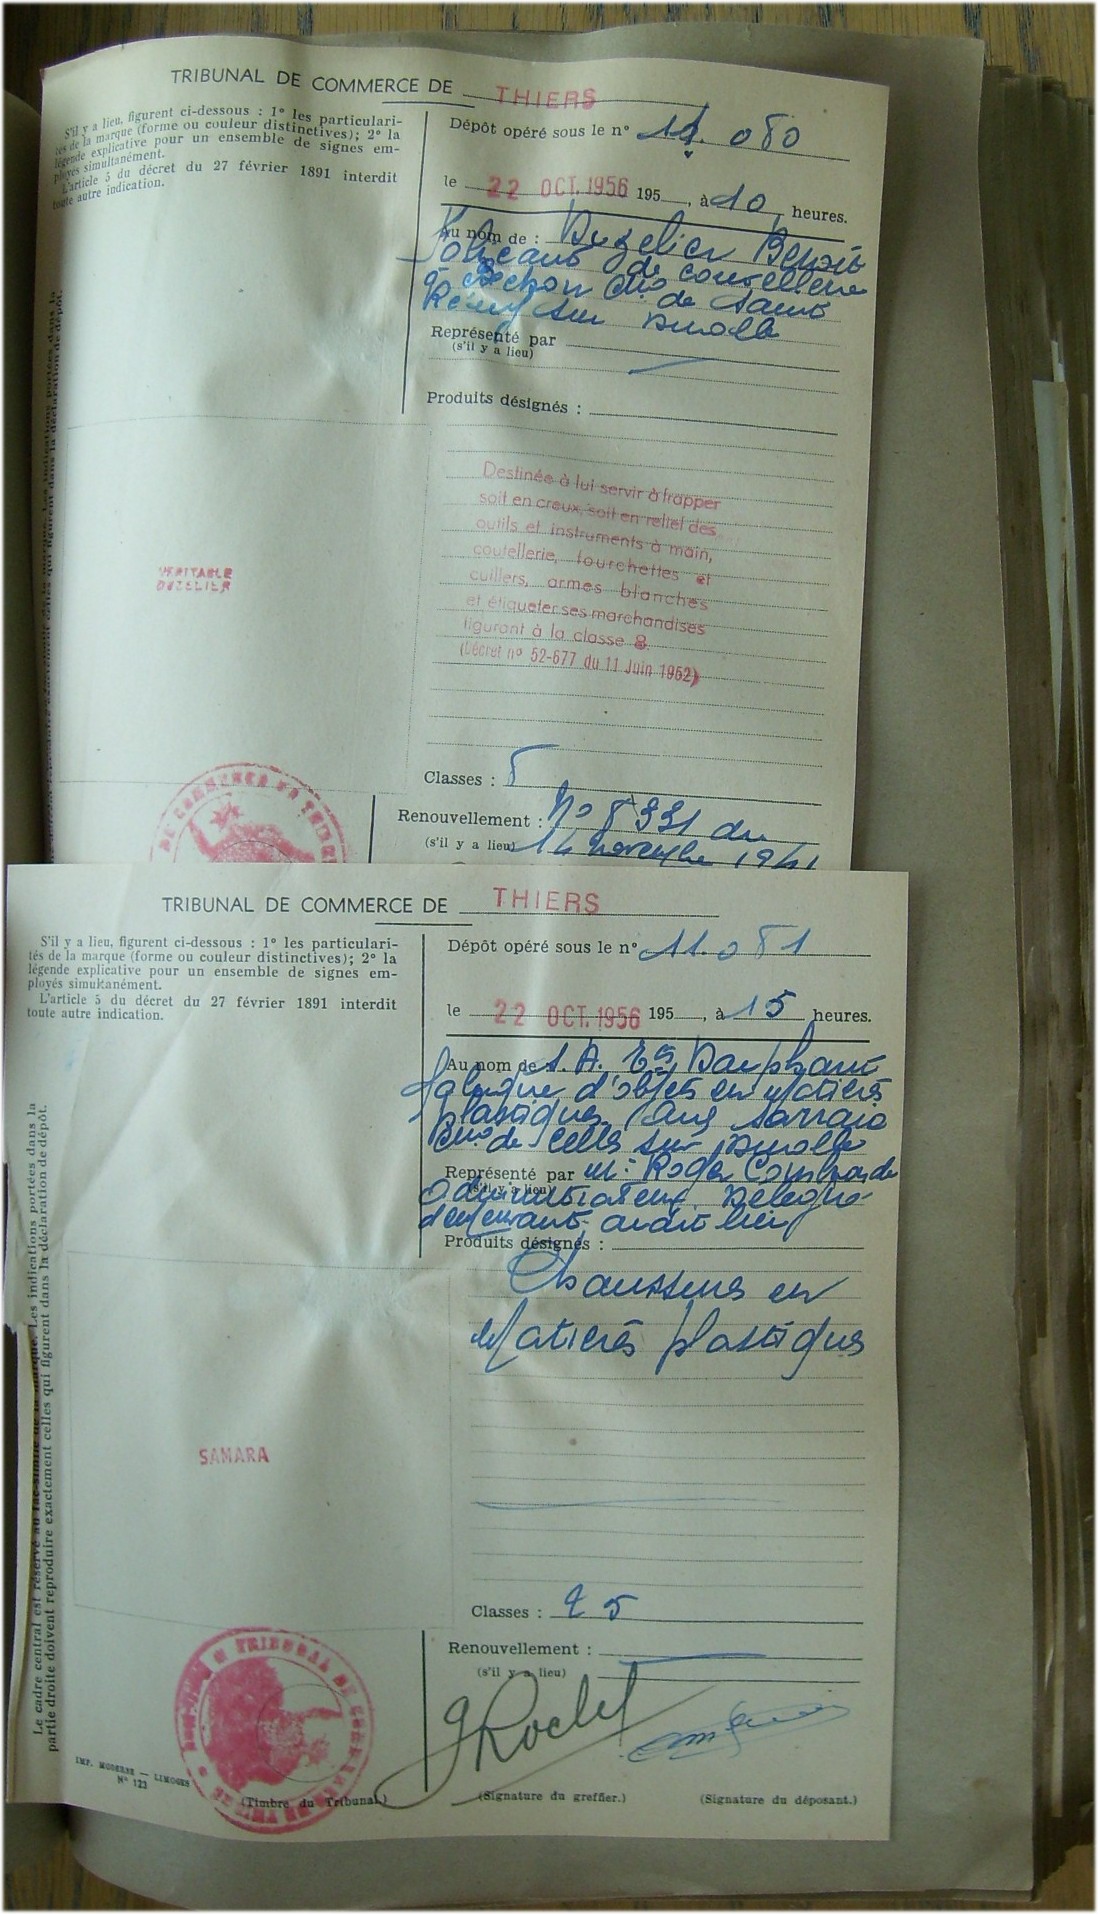 TRIBUNAL DE COMMERCE DE THIERS
S'il y a lieu, figurent ci-dessous : 1° les particulari-
tés de la marque (forme ou couleur distinctives); 2° la
légende explicative pour un ensemble de signes em-
ployés simultanément.
L'article 5 du décret du 27 février 1891 interdit
toute autre indication.
Dépôt opéré sous le n° 11.080
le 22 OCT. 1956 195 , à 10 heures.
Au nom de : Duzelier Benoit
Fabricant de coutellerie
à Cne de Saint
Rémy sur Durolle
Représenté par
(s'il y a lieu)
Produits désignés :
Destinée à lui servir à frapper
soit en creux, soit en relief des
outils et instruments à main,
coutellerie, fourchettes et
cuillers, armes blanches
et étiqueter ses marchandises
figurant à la classe 8.
(Décret n° 52-677 du 11 Juin 1952)
VERITABLE
DUZELIER
Classes : 8
Renouvellement : No 8391 du
(s'il y a lieu) 14 novembre 1941
TRIBUNAL DE COMMERCE DE THIERS
S'il y a lieu, figurent ci-dessous : 1° les particulari-
tés de la marque (forme ou couleur distinctives); 2° la
légende explicative pour un ensemble de signes em-
ployés simultanément.
L'article 5 du décret du 27 février 1891 interdit
toute autre indication.
Dépôt opéré sous le n° 11.081
le 22 OCT. 1956 195 , à 15 heures.
Au nom de S.A. Ets Dauphant
fabrique d'objets en Matières
plastiques Sarraix
Cne de Celles sur Durolle
Représenté par M: Roger
(s'il y a lieu)
administrateur Délégué
demeurant audit lieu
Produits désignés :
Chaussures en
Matières plastiques
SAMARA
Classes : 25
Renouvellement :
(s'il y a lieu)
Le cadre central est réservé au fac-similé de la marque. Les indications portées dans la
partie droite doivent reproduire exactement celles qui figurent dans la déclaration de dépôt.
IMP. MODERNE — LIMOGES
N° 123
TRIBUNAL DE COMMERCE DE THIERS
(Timbre du Tribunal.)
(Signature du greffier.)
(Signature du déposant.)